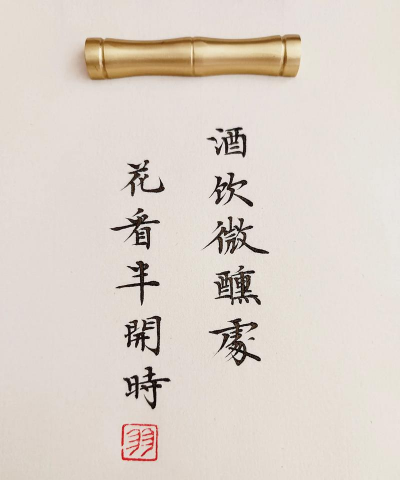 酒饮微醺處
花看半開時
羽